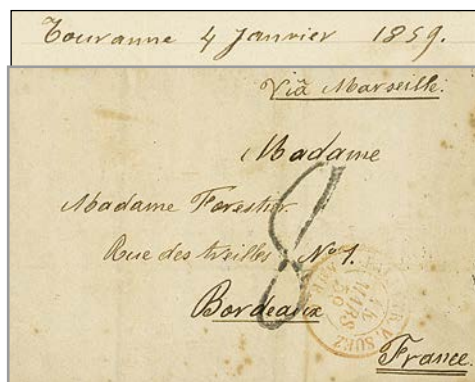 Touranne 4 Janvier 1859.
Viâ Marseille.
Madame
Madame Forestier.
Rue des treilles N° 1.
Bordeaux
8
MARS
59
V. SUEZ
France.